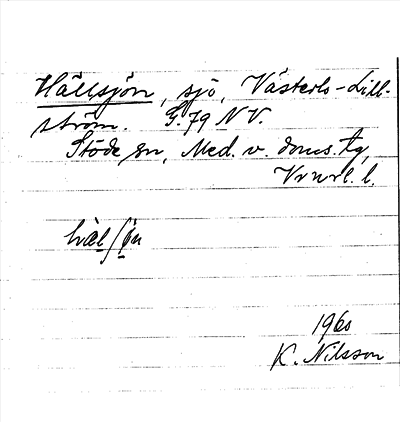 Hällsjön, sjö, Västerlo-Lill-
ström. G. 79 NV.
Stöde sn, Med. v. doms. tg,
Vrnrl. l.
hälʃön
1960
K. Nilsson